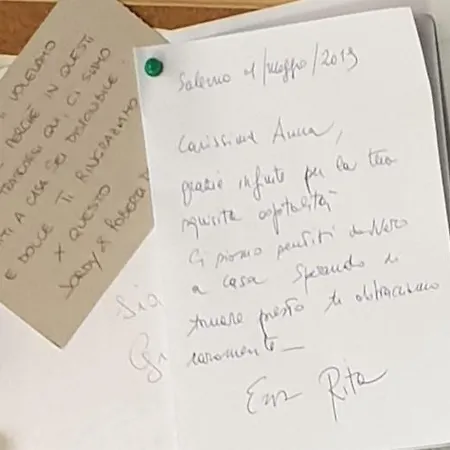 VOLEVAMO
PERCHÉ IN QUESTI
QUI CI SIAMO
A CASA SEI DISPONIBILE
E DOLCE TI RINGRAZIAMO
X QUESTO
Salerno 1/maggio/2019
Carissima Anna,
grazie infinite per la tua
squisita ospitalità
Ci siamo sentiti davvero
a casa sperando di
tornare presto ti abbracciamo
caramente
Rita